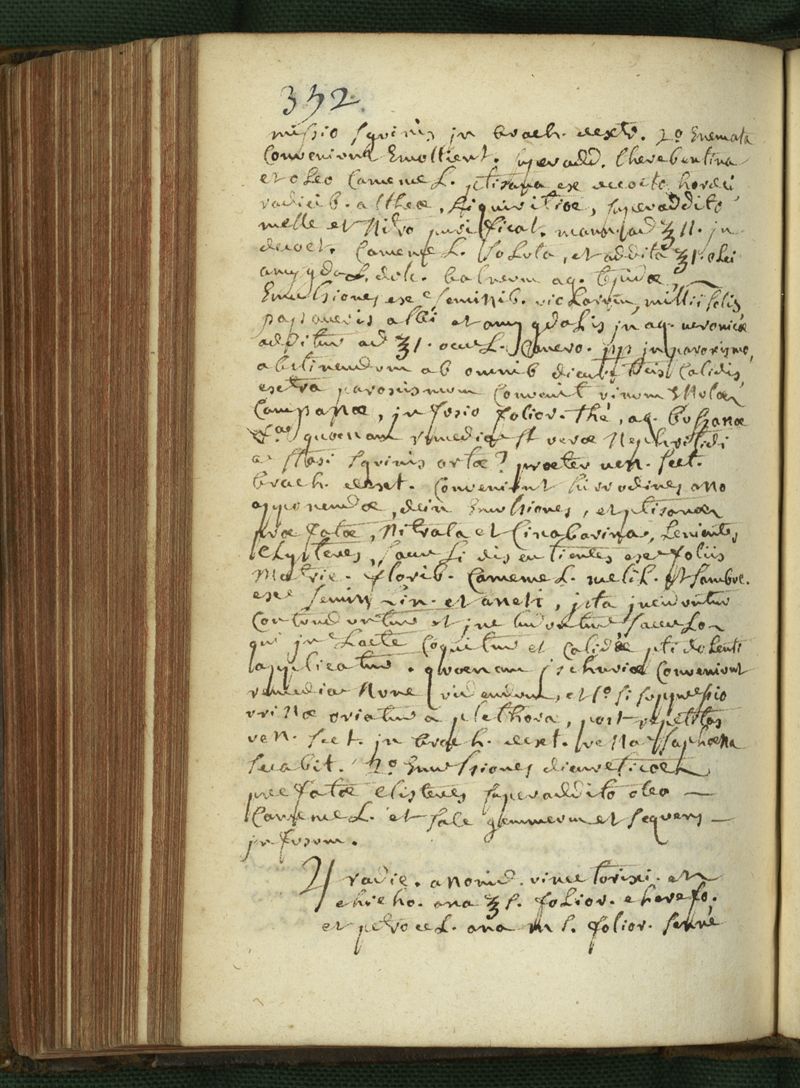 352.
missio sgvinis jn brach. dextr. 2º Enemata
Conveniunt Emollient. superadd. therebentina
et oleo Camemel. ptisana ex decocto hordei
radicib. altheæ, Liquiritiæ, superaddito
melle et Nitro purificat. manna ad ℥ij. jn
decoct. Camemel. soluta, et addita ℥j. olei
amygdal. dulc. balneum aq. tepidæ,
Emulsiones ex seminib. violarum, milii solis
papaveris albi et amygdalis jn aq. veronicæ
additur ad ℥j. ocul. Cancro. ppt jn paroxysmo,
abstinendum ab omnib diureticis Calidis,
extra paroxismum Convenit vinum Enulæ
Campanæ, jnfusio folior. thé, aq.
quænam remedia st veræ Nephritidi
a stasi sgvinis ortæ? præter ven. sect.
brach. dext. Conveniunt hirudines ano
apponendæ, dein Emulsiones, et ptisanæ
præfatæ, Nitrata et Cinabarina, Lenientes
Clysteres, sacculi discutientes ex foliis
Matric. florib. Camemel. melil. et sambuc.
ex semin Lin. et aneti, jsta jnciduntur
Contunduntur et jncluduntur sacculo
qui jn Lacte Coquitur et Calide pti dolenti
applicatur. quænam jschuriæ Conveniunt
remedia Nunc videndum, et 1º. si suppressio
vrinæ oriatur a plethora, post repetitas
ven. sect. jn brach. dext. vena saphæna
secabit. 2º Emulsiones diureticæ
præfatæ Clisteres superaddito oleo —
Camemel. et sale gemmeum et sequens —
jnfusum.
♃ radic. anonid. vincetoxici. et
chicho. ana ℥s. folior. cherefo.
et petrocel. ana m s. folior. sennè